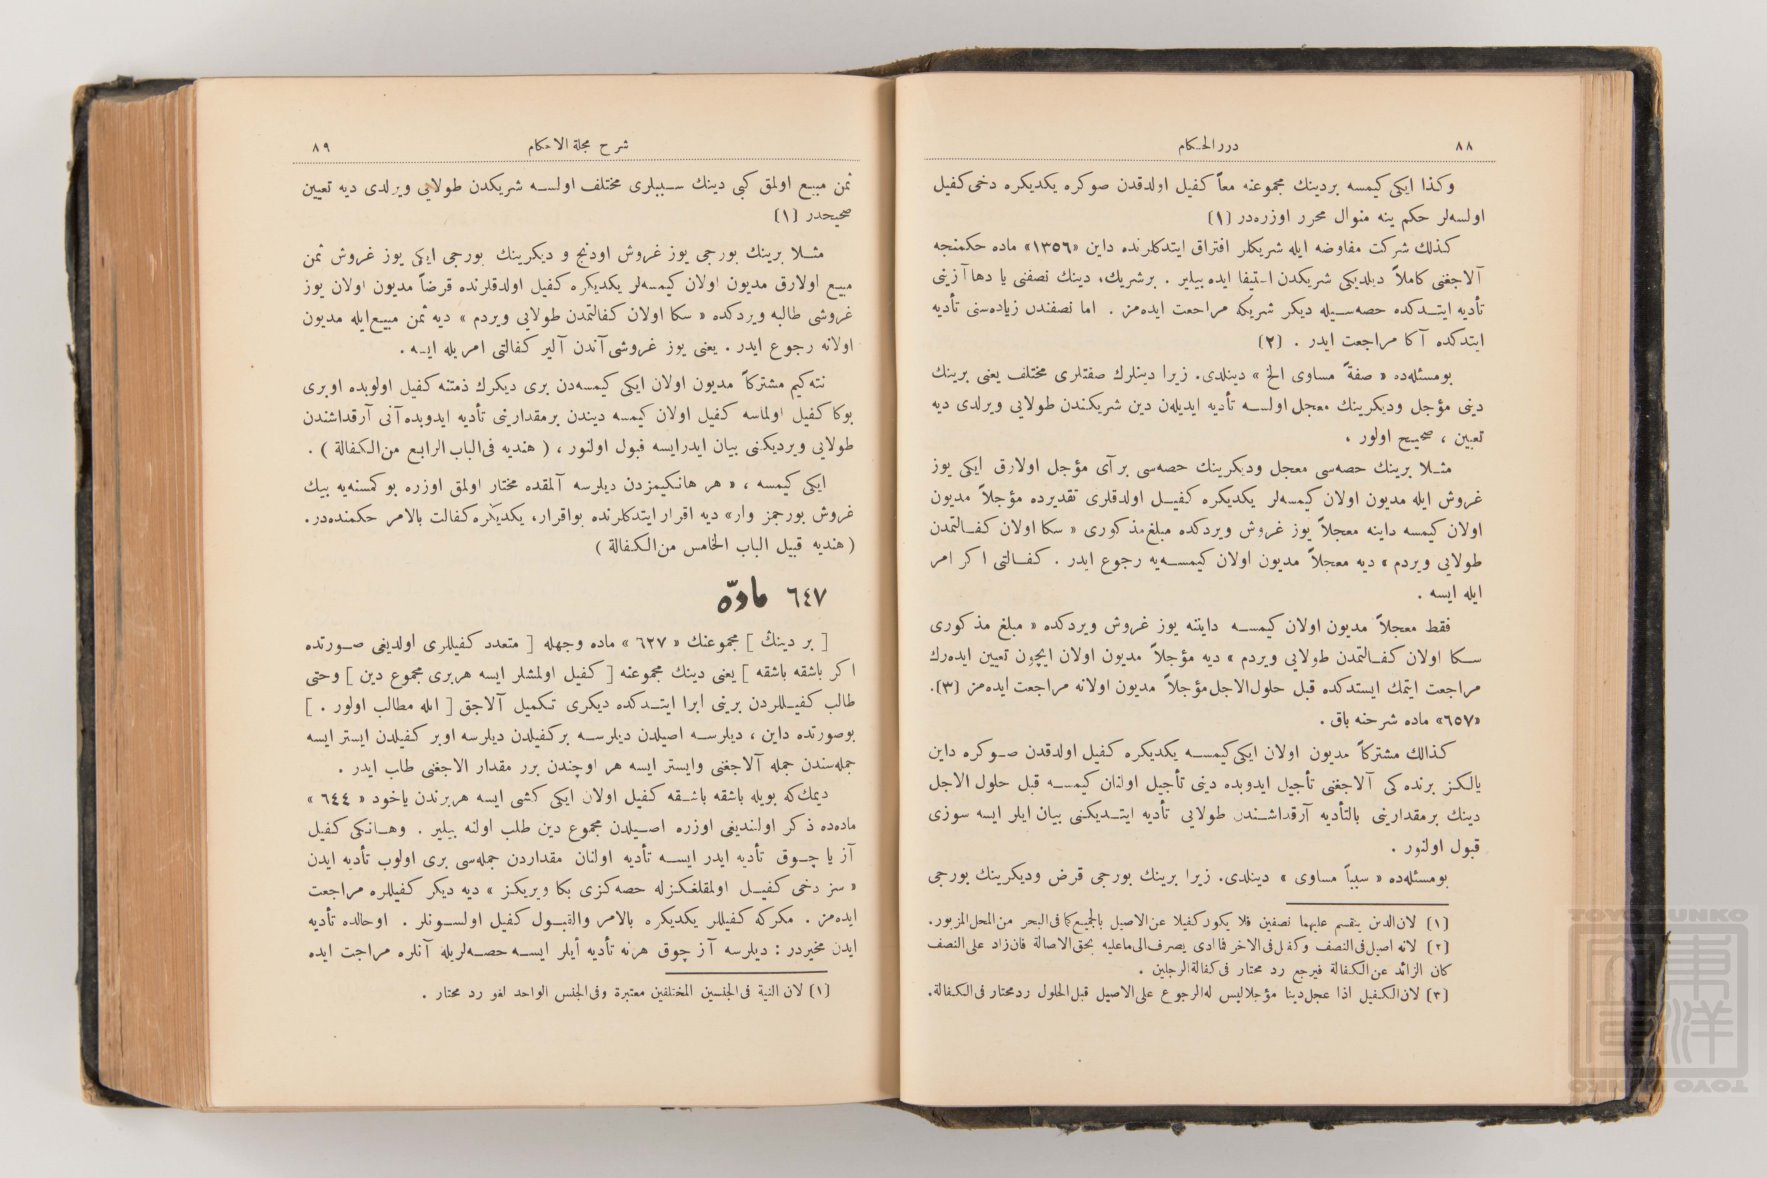 ٨٨
درر الحكام
وكذا ایکی کیمسه بردینك مجموعنه معاً كفیل اولدقدن صوكره یكدیكره دخی كفیل
اولسه‌لر حكم ینه منوال محرر اوزره‌در (١)
كذلك شركت مفاوضه ایله شریكلر افتراق ایتدكلرنده داین «١٣٥٦» ماده حكمنجه
آلاجغنی كاملاً دیلدیكی شریكدن استیفا ایده بیلیر . برشریك، دینك نصفنی یا دها آزینی
تأدیه ایتـدكده حصه‌سیله دیكر شریكه مراجعت ایده‌مز . اما نصفندن زیاده‌سنی تأدیه
ایتدكده آكا مراجعت ایدر . (٢)
بومسئله‌ده « صفةً مساوی الخ » دینلدی. زیرا دینلرك صفتلری مختلف یعنی برینك
دینی مؤجل ودیكرینك معجل اولسـه تأدیه ایدیلن دین شریكندن طولایی ویرلدی دیه
تعیین ، صحیح اولور .
مثـلا برینك حصه‌سی معجل ودیكرینك حصه‌سی بر آی مؤجل اولارق ایكی یوز
غروش ایله مدیون اولان كیمسه‌لر یكدیكره كفیـل اولدقلری تقدیرده مؤجلاً مدیون
اولان كیمسه داینه معجلاً یوز غروش ویردكده مبلغ مذكوری « سكا اولان كفـالتمدن
طولایی ویردم » دیه معجلاً مدیون اولان كیمسـه‌یه رجوع ایدر . كفـالتی اكر امر
ایله ایسه .
فقط معجلاً مدیون اولان كیمسـه داینه یوز غروش ویردكده « مبلغ مذكوری
سـكا اولان كفـالتمدن طولایی ویردم » دیه مؤجلاً مدیون اولان ایچون تعیین ایده‌رك
مراجعت ایتمك ایستدكده قبل حلول‌الاجل مؤجلاً مدیون اولانه مراجعت ایده‌مز (٣).
«٦٥٧» ماده شرحنه باق .
كذالك مشتركاً مدیون اولان ایكی كیمسـه یكدیكره كفیل اولدقدن صـوكره داین
یالكز برنده كی آلاجغنی تأجیل ایدوبده دینی تأجیل اولنان كیمسـه قبل حلول الاجل
دینك برمقدارینی بالتأدیه آرقداشـندن طولایی تأدیه ایتـدیكنی بیان ایلر ایسه سوزی
قبول اولنور .
بومسئله‌ده « سبباً مساوی » دینلدی. زیرا برینك بورجی قرض ودیكرینك بورجی
(١) لان‌الدین ینقسم علیهما نصفین فلا یكون كفیلا عن‌الاصیل بالجمیع كما فی البحر من‌المحل المزبور.
(٢) لانه اصیل فی‌النصف وكفیل فی‌الاخر فما ادی یصرف الی ماعلیه بحق الاصالة فان زاد علی النصف
كان الزائد عن‌الكفالة فیرجع رد محتار فی كفالة‌الرجلین .
(٣) لان‌الكفیل اذا عجل دینا مؤجلا لیس له‌الرجوع علی الاصیل قبل الحلول رد محتار فی الكفالة.
شرح مجلة الاحكام
٨٩
ثمن مبیـع اولمق كبی دینك سـببلری مختلف اولسـه شریكدن طولایی ویرلدی دیه تعیین
صحیحدر (١)
مثـلا برینك بورجی یوز غروش اودنج و دیكرینك بورجی ایكی یوز غروش ثمن
مبیع اولارق مدیون اولان كیمسه‌لر یكدیكره كفیل اولدقلرنده قرضاً مدیون اولان یوز
غروشی طالبه ویردكده « سكا اولان كفالتمدن طولایی ویردم » دیه ثمن مبیـع ایله مدیون
اولانه رجوع ایدر . یعنی یوز غروشی آندن آلیر كفالتی امریله ایسه .
نته‌كیم مشتركاً مدیون اولان ایكی كیمسه‌دن بری دیكرك ذمتنه كفیل اولوبده اوبری
بوكا كفیل اولماسه كفیل اولان كیمسه دیندن برمقدارینی تأدیه ایدوبده آنی آرقداشندن
طولایی ویردیكنی بیان ایدرایسه قبول اولنور ، ( هندیه فی‌الباب الرابع من‌الكفالة ) .
ایكی كیمسه ، « هر هانكیمزدن دیلرسه آلمقده مختار اولمق اوزره بو كمسنه‌یه بیك
غروش بورجمز وار» دیه اقرار ایتدكلرنده بواقرار، یكدیكره كفالت بالامر حكمنده‌در.
( هندیه قبیل الباب الخامس من‌الكفالة )
٦٤٧ مادّه
[ بر دینك ] مجموعنك « ٦٢٧ » ماده وجهله [ متعدد كفیللری اولدیغی صـورتده
اكر باشقه باشقه ] یعنی دینك مجموعنه [ كفیل اولمشلر ایسه هربری مجموع دین ] وحتی
طالب كفیـللردن برینی ابرا ایتـدكده دیكری تكمیل آلاجق [ ایله مطالب اولور . ]
بوصورتده داین ، دیلرسـه اصیلدن دیلرسـه بركفیلدن دیلرسه اوبر كفیلدن ایستر ایسه
جمله‌سندن جمله آلاجغنی وایستر ایسه هر اوچندن برر مقدار الاجغنی طلب ایدر .
دیمك‌كه بویله باشقه باشـقه كفیل اولان ایكی كشی ایسه هربرندن یاخود « ٦٤٤ »
ماده‌ده ذكر اولندیغی اوزره اصـیلدن مجموع دین طلب اولنه بیلیر . وهـانكی كفیل
آز یا چـوق تأدیه ایدر ایسـه تأدیه اولنان مقداردن جمله‌سی بری اولوب تأدیه ایدن
« سز دخی كفیـل اولمقلغكزله حصه‌كزی بكا ویریكز » دیه دیكر كفیللره مراجعت
ایده‌مز . مكركه كفیللر یكدیكره بالامر والقبـول كفیل اولسـونلر . اوحالده تأدیه
ایدن مخیردر : دیلرسه آز چوق هرنه تأدیه أیلر ایسـه حصـه‌لریله آنلره مراجعت ایده
(١) لان النیة فی‌الجنسین المختلفین معتبرة وفی‌الجنس الواحد لغو رد محتار .
TOYO BUNKO
東洋文庫